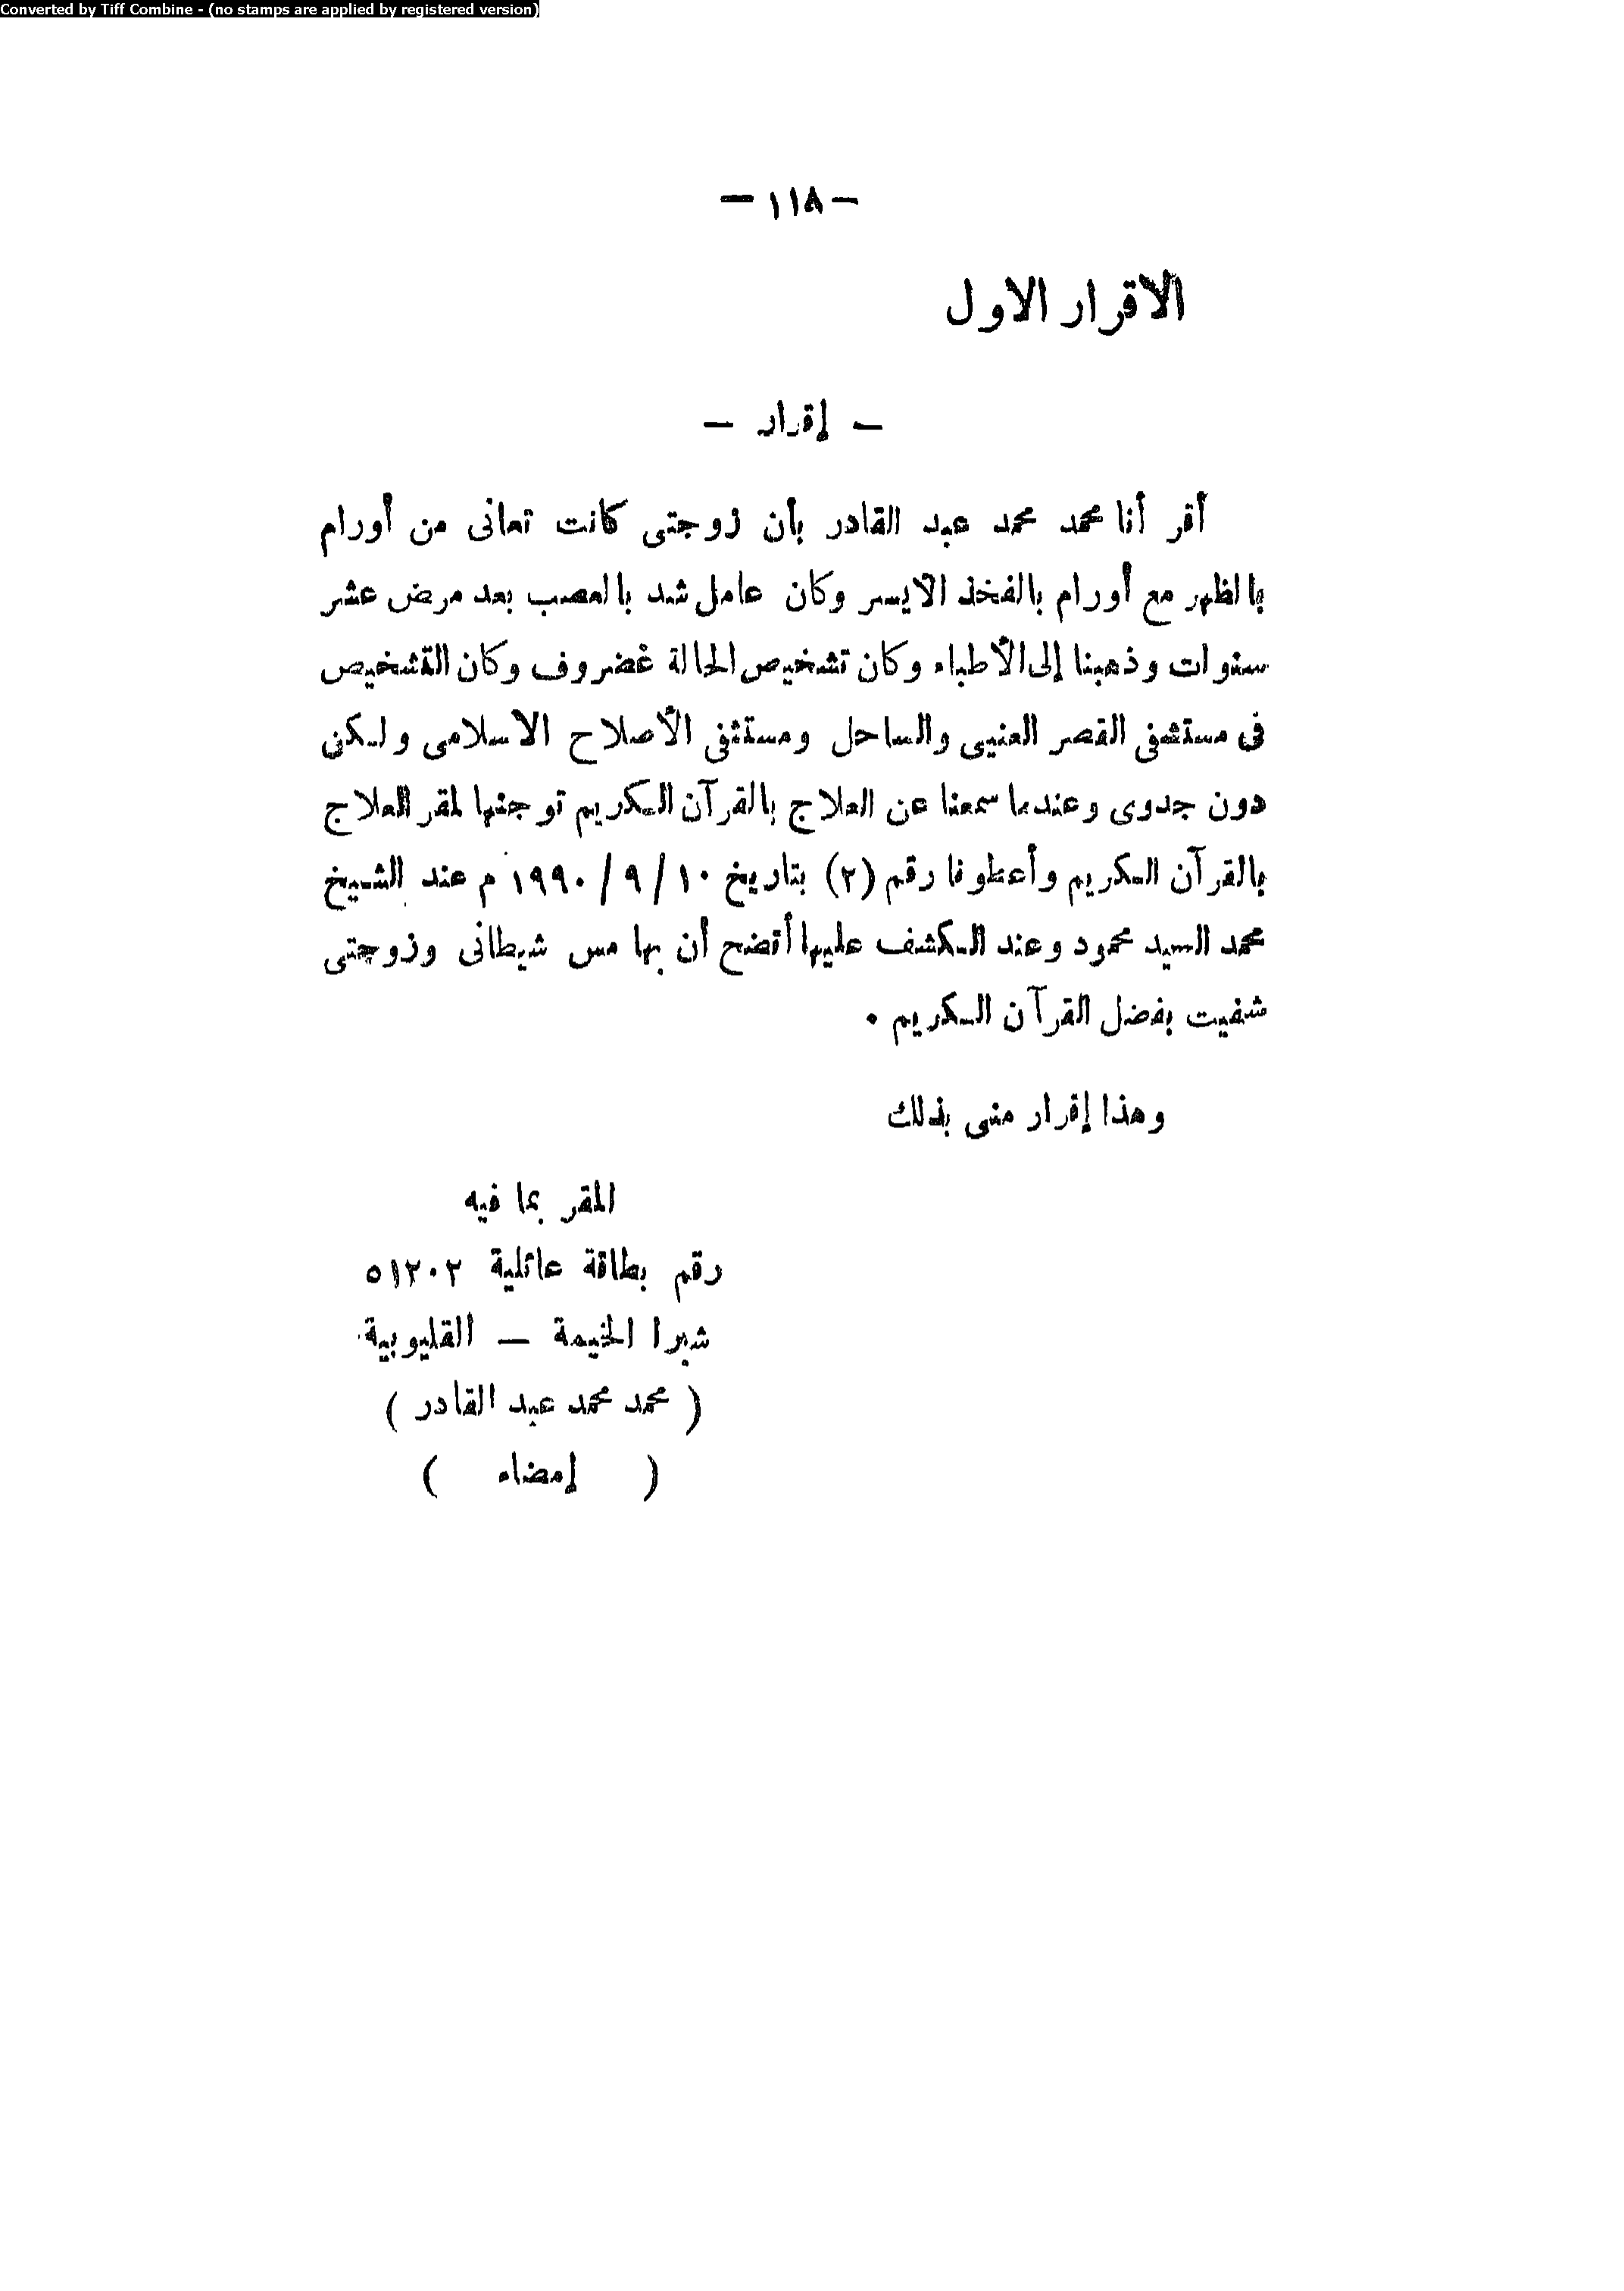 Converted by Tiff Combine - (no stamps are applied by registered version)
— ١١٨ —
الاقرار الاول
— إقرار —
أقر أنا محمد محمد عبد القادر بأن زوجتى كانت تعانى من أورام
بالظهر مع أورام بالفخذ الايسر وكان عامل شد بالعصب بعد مرض عشر
سنوات وذهبنا إلى الأطباء وكان تشخيص الحالة غضروف وكان التشخيص
فى مستشفى القصر العنيى والساحل ومستثفى الأصلاح الاسلامى ولكن
دون جدوى وعندما سمعنا عن العلاج بالقرآن الكريم توجئها لمقر العلاج
بالقرآن الكريم وأعطونا رقم (٢) بتاريخ ١٠ / ٩ / ١٩٩٠ م عند الشيخ
محمد السيد محمود وعند الكشف عليها أتضح أن بها مس شيطانى وزوجتى
شفيت بفضل القرآن الكريم .
وهذا إقرار منى بذلك
المقر بما فيه
رقم بطاقة عائلية ٥١٢٠٢
شبرا الخيمة — القليوبية
( محمد محمد عبد القادر )
( إمضاء )